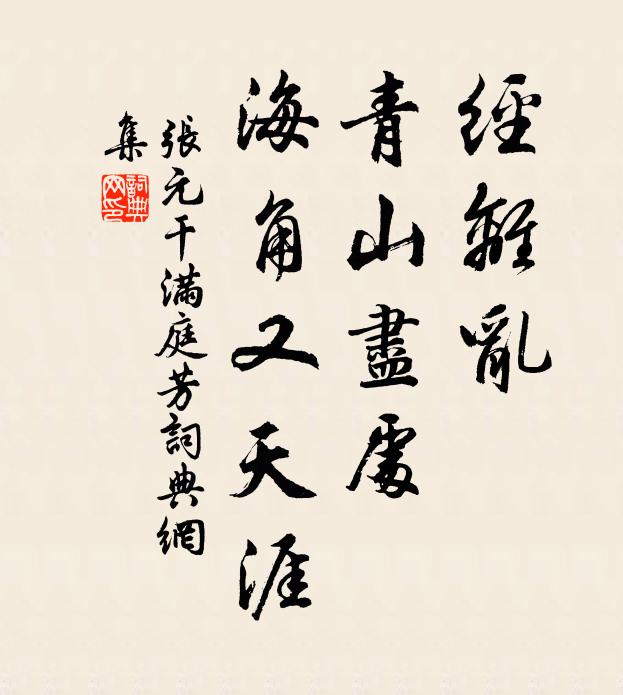 經離亂
青山盡處
海角又天涯
張元干滿庭芳詞典網
集
詞典
网印